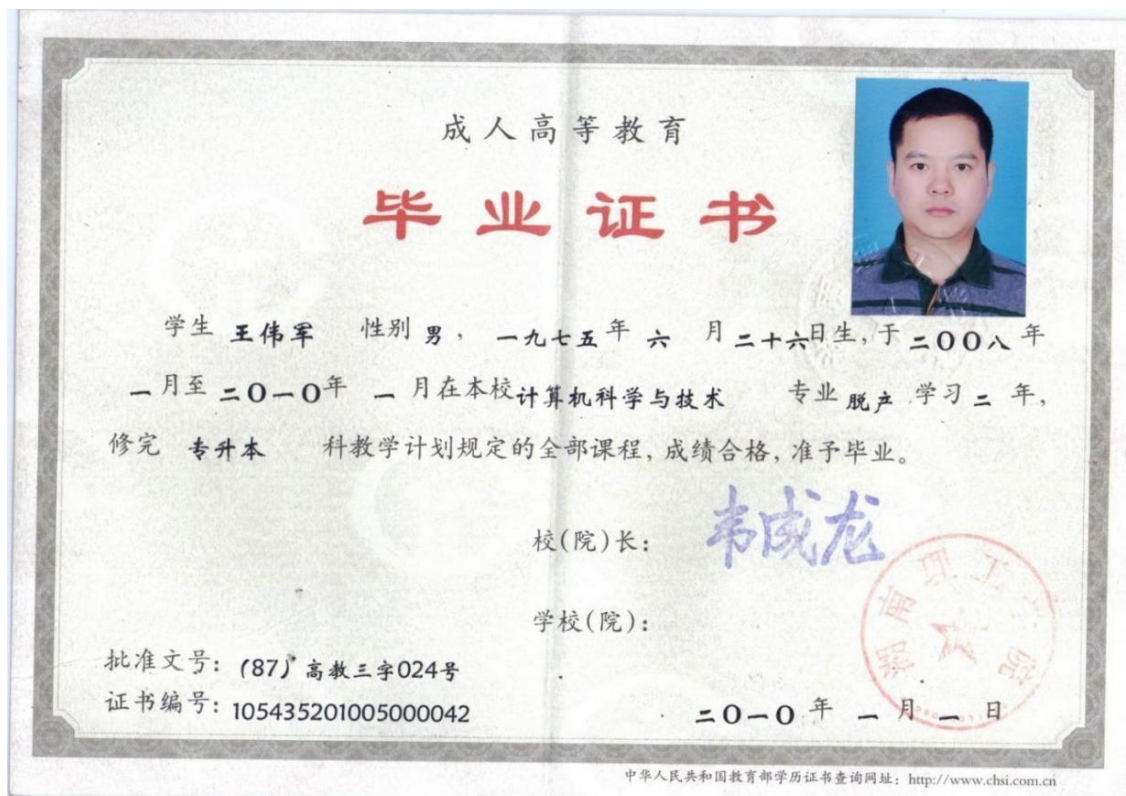 成人高等教育
毕业证书
学生 王伟军 性别 男, 一九七五年 六 月二十六日生,于二〇〇八年
一月至二〇一〇年 一 月在本校计算机科学与技术 专业 脱产 学习二 年,
修完 专升本 科教学计划规定的全部课程,成绩合格,准予毕业。
校(院)长: 韦成龙
湖南理工学院
学校(院):
批准文号: (87)高教三字024号
证书编号: 105435201005000042
二〇一〇年 一 月 一 日
中华人民共和国教育部学历证书查询网址: http://www.chsi.com.cn